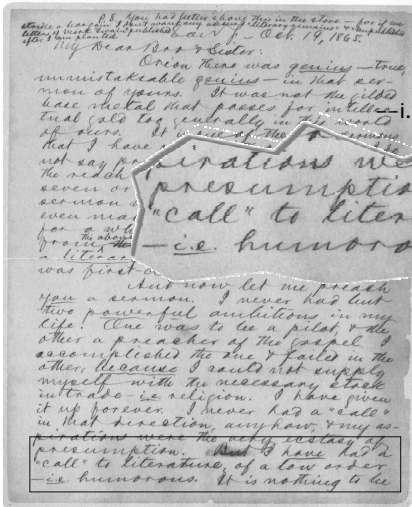 P.S. You had better shove this in the stove - for if we
strike a bargain I don't want any absurd "literary remains" & "unpublished
letters of Mark Twain" published
after I am planted.
San F. - Oct. 19, 1865.
My Dear Bro & Sister:
Orion there was genius - true,
unmistakeable genius - in that ser-
mon of yours. It was not the gilded
base metal that passes for intellec-
tual gold too generally in this world
of ours. It is one of the
that I have
not say
the reach
seven or
sermon
even
for a
the above
from
a literar
was first
pirations we
presumptio
"call" to liter
-i.e. humoro
i.
And now let me preach
you a sermon. I never had but
two powerful ambitions in my
life. One was to be a pilot, & the
other a preacher of the gospel. I
accomplished the one & failed in the
other, because I could not supply
myself with the necessary stock
in trade - i.e. religion. I have given
it up forever. I never had a "call"
in that direction, anyhow, & my as-
pirations were the very ecstasy of
presumption. But I have had a
"call" to literature, of a low order
-i.e. humorous. It is nothing to be